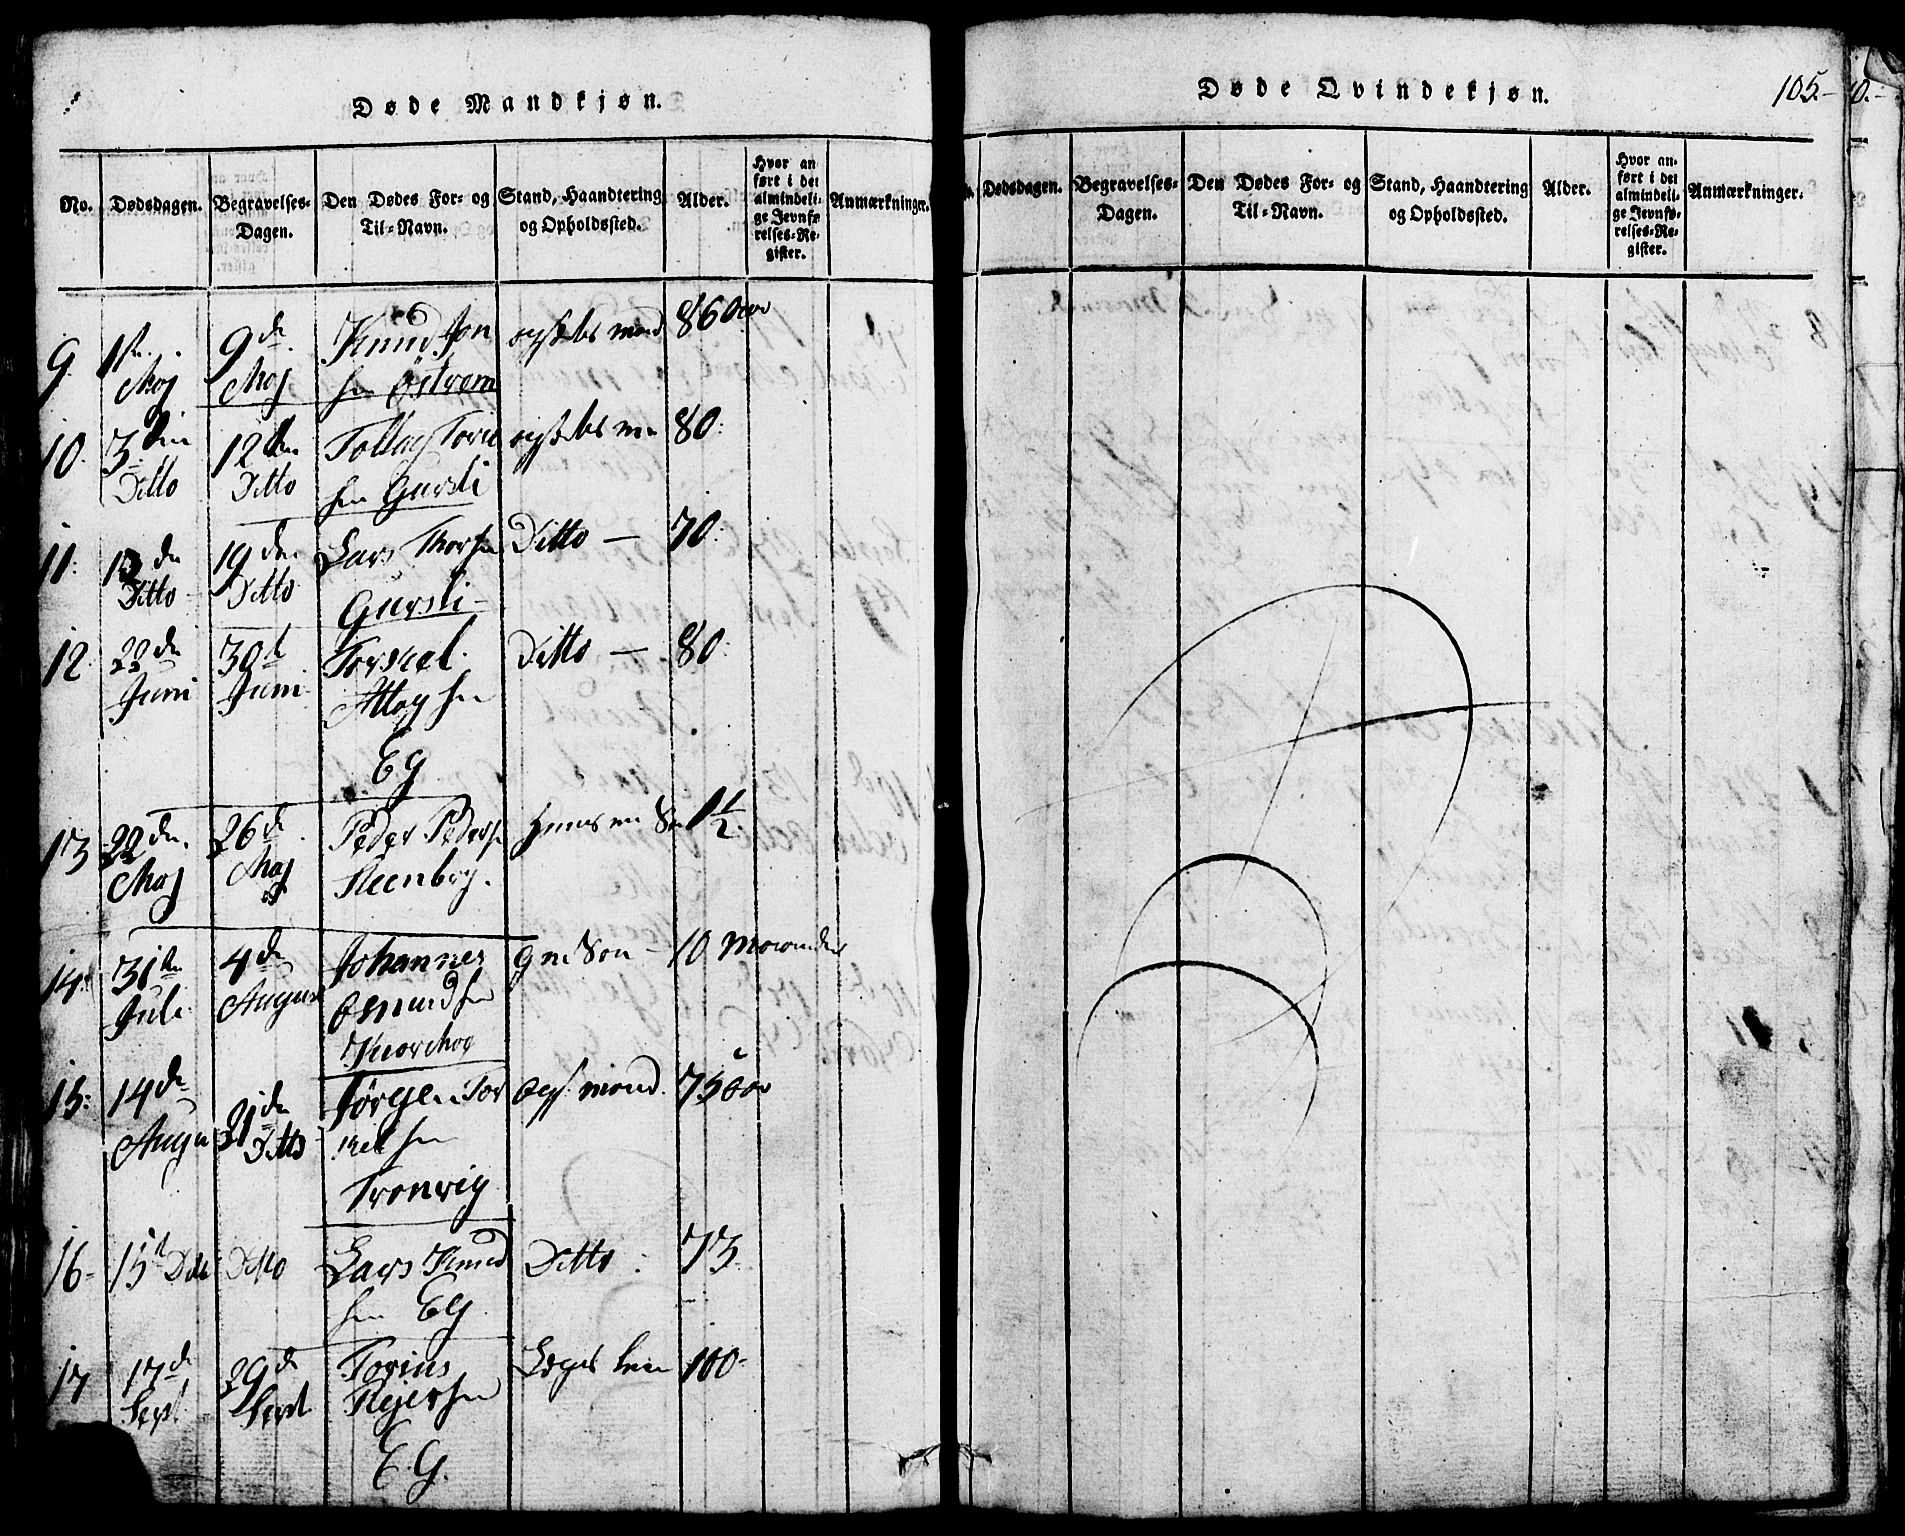 Døde Mandkjøn.
No. Dødsdagen. Begravelses-Dagen. Den Dødes For- og Til-Navn. Stand, Haandtering og Opholdssted. Alder. Hvor anført i det almindelige Jevnførelses-Register. Anmærkninger.
9 Maj 9de Maj Knud Jon
sen Østrem 86 aar
10. 3den Ditto 12ten Ditto Tollag Torie
sen Gursli 80.
11. 13de Ditto 19den Ditto Lars Thorsen Ditto — 70.
Gursli
12. 22de Juni 30t Juni Torskel Ditto — 80.
Attagsen
Eg
13 22den Maj 26de Maj Peder Peders 1½.
Steenberg.
14. 31te Juli 4de August Johannes Son — 10 Maaneder
Osmundsen
15. 14de Augu 21de Ditto Jørgen Tor 75 aar
kelsen
Tronvig
16. 15t Ditto Ditto Lars Knud Ditto 73
sen Eg
17 17de Sept 29de Sept Torius Lægs lem 100-
Rejersen
E G.
Døde Qvindekjøn.
105.
Dødsdagen. Begravelses-Dagen. Den Dødes For- og Til-Navn. Stand, Haandtering og Opholdssted. Alder. Hvor anført i det almindelige Jevnførelses-Register. Anmærkninger.